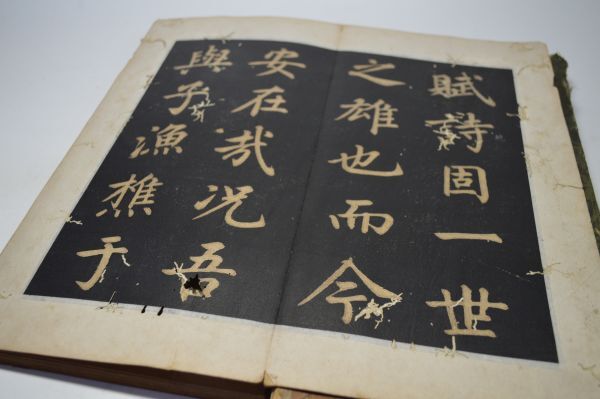 賦詩固一世
之雄也而今
安在哉况吾
與子漁樵于